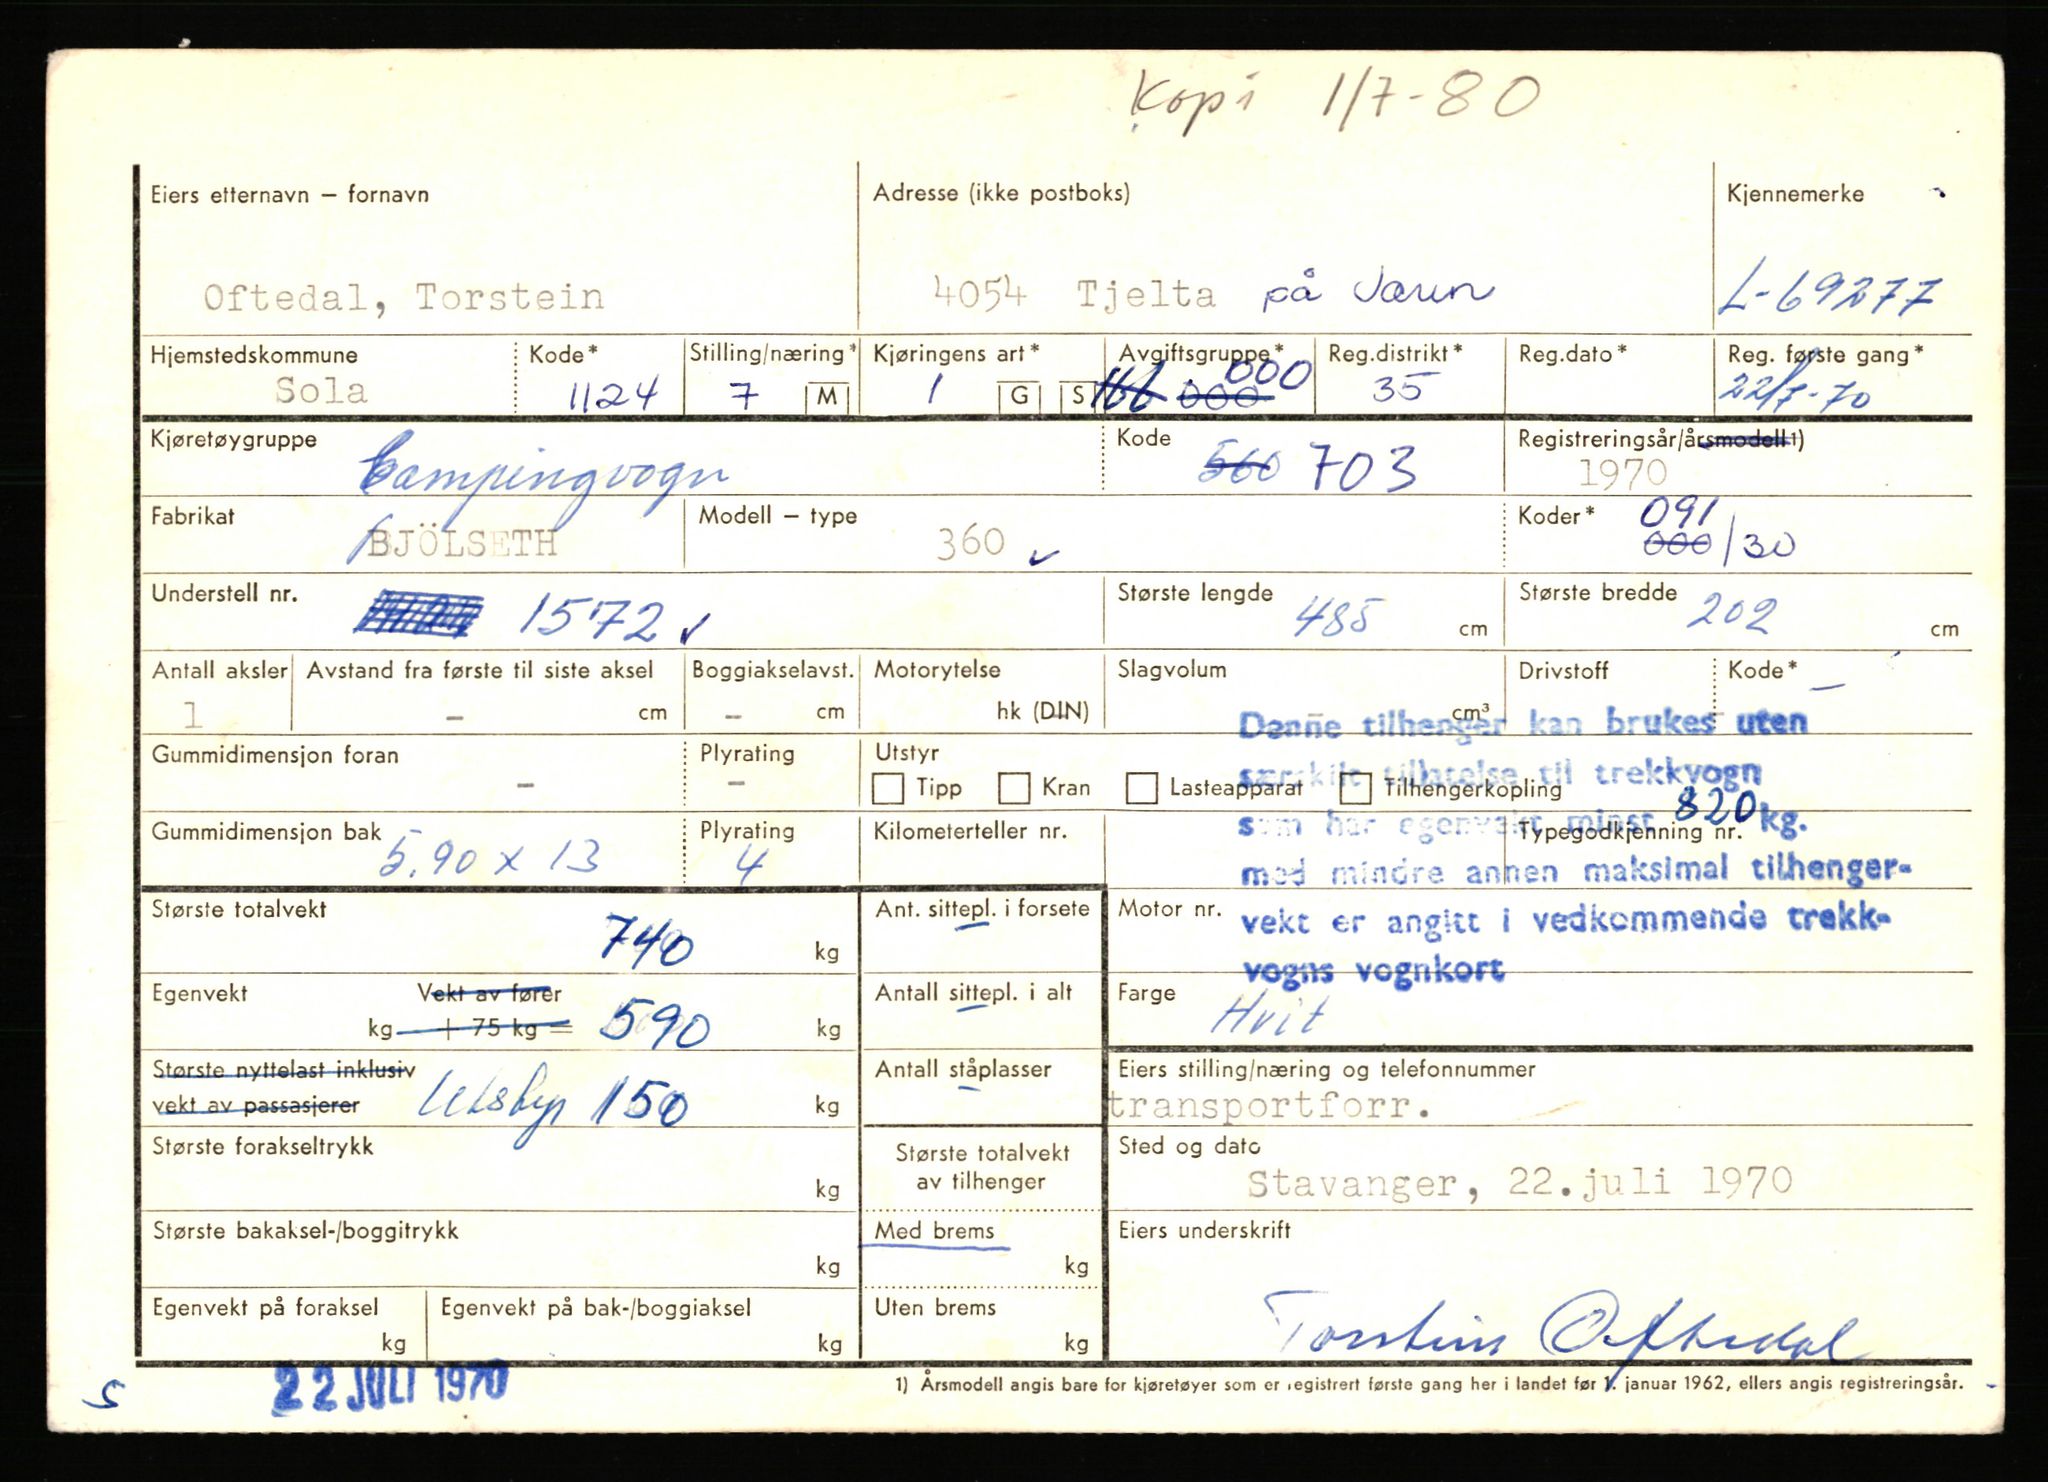 Kopi 1/7-80
Eiers etternavn – fornavn
Adresse (ikke postboks)
Kjennemerke
Oftedal, Torstein
4054 Tjelta på Jæren
L-69277
Hjemstedskommune
Kode*
Stilling/næring*
Kjøringens art*
Avgiftsgruppe*
Reg.distrikt*
Reg.dato*
Reg. første gang*
000
Sola
1124
7 M
1 G S
000
35
22/7-70
Kjøretøygruppe
Campingvogn
Kode
560 703
Registreringsår/årsmodell 1)
1970
Fabrikat
BJÖLSETH
Modell – type
360
Koder*
091
000/30
Understell nr.
1572
Største lengde
485 cm
Største bredde
202 cm
Antall aksler
1
Avstand fra første til siste aksel
– cm
Boggiakselavst.
– cm
Motorytelse
hk (DIN)
Slagvolum
cm³
Drivstoff
Kode*
–
Denne tilhenger kan brukes uten
særskilt tillatelse til trekkvogn
som har egenvekt minst 820 kg.
med mindre annen maksimal tilhenger-
vekt er angitt i vedkommende trekk-
vogns vognkort
Gummidimensjon foran
–
Plyrating
–
Utstyr
Tipp Kran Lasteapparat Tilhengerkopling
Gummidimensjon bak
5.90 x 13
Plyrating
4
Kilometerteller nr.
Typegodkjenning nr.
Største totalvekt
740 kg
Ant. sittepl. i forsete
Motor nr.
Egenvekt
Vekt av fører
kg + 75 kg = 590 kg
Antall sittepl. i alt
Farge
Hvit
Største nyttelast inklusiv
vekt av passasjerer
150 kg
Antall ståplasser
Eiers stilling/næring og telefonnummer
transportforr.
Største forakseltrykk
kg
Største totalvekt
av tilhenger
Sted og dato
Stavanger, 22.juli 1970
Største bakaksel-/boggitrykk
kg
Med brems
kg
Eiers underskrift
Torstein Oftedal
Egenvekt på foraksel
kg
Egenvekt på bak-/boggiaksel
kg
Uten brems
kg
S
22 JULI 1970
1) Årsmodell angis bare for kjøretøyer som er registrert første gang her i landet før 1. januar 1962, ellers angis registreringsår.